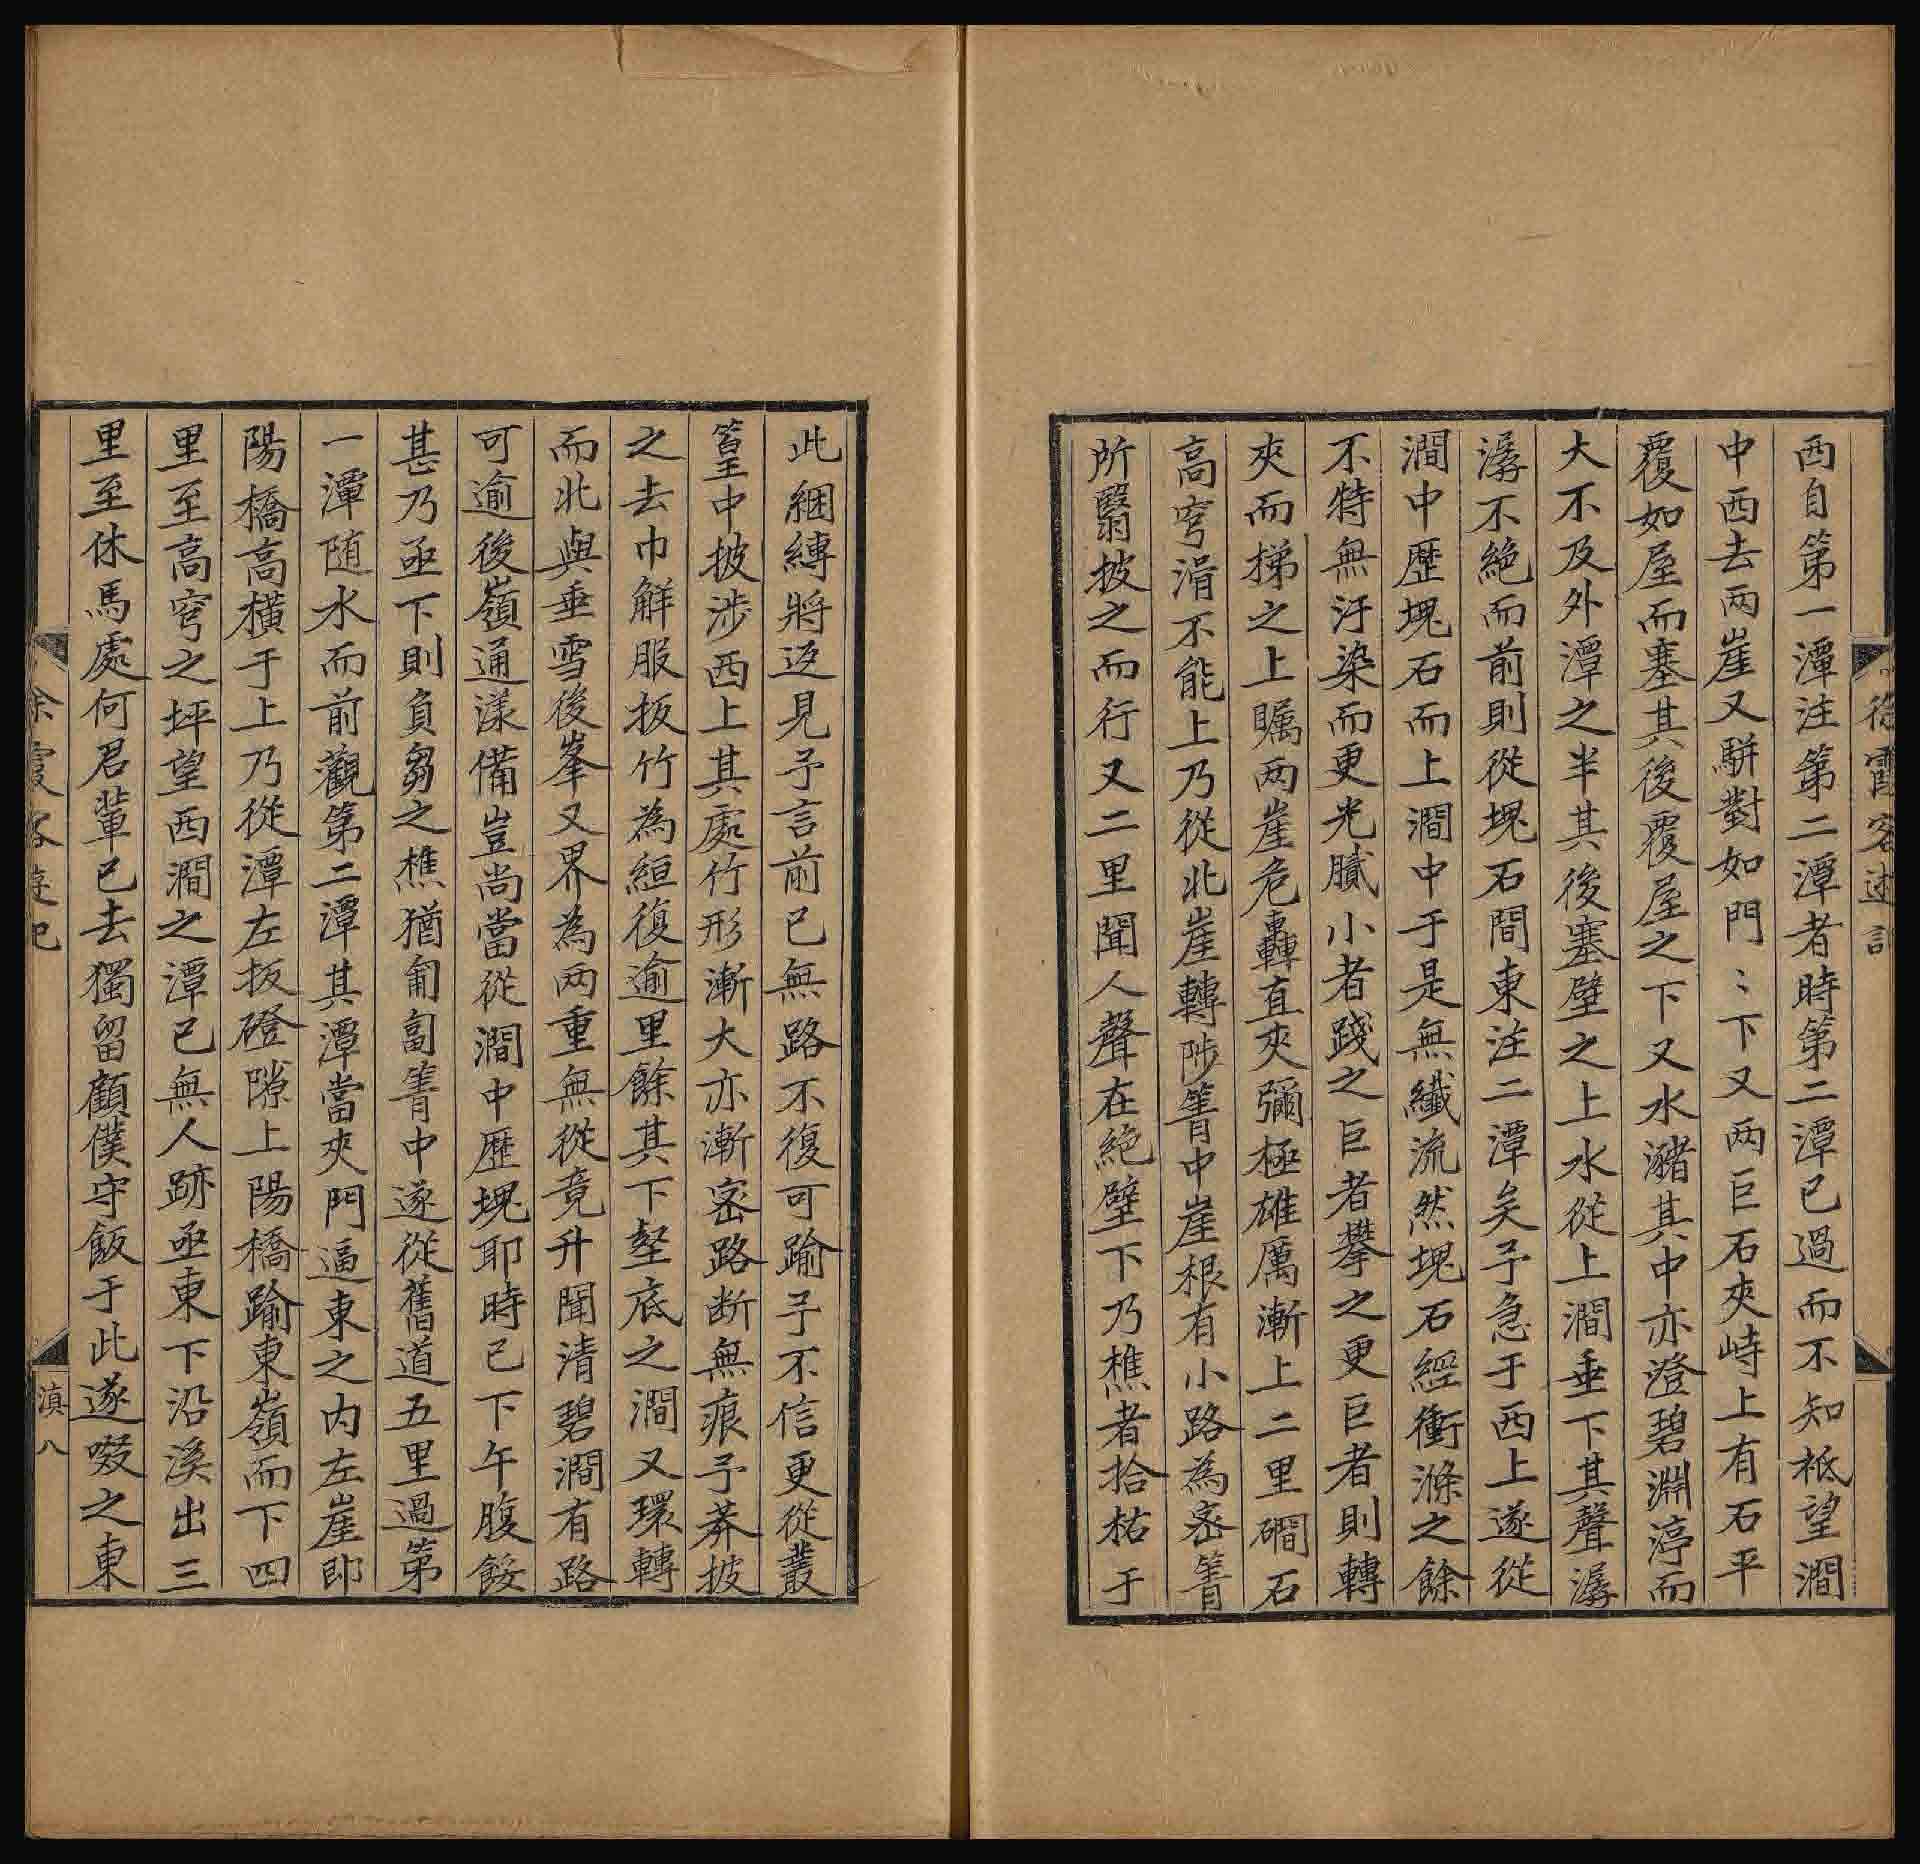 西自第一潭注第二潭者時第二潭已過而不知袛望澗
中西去兩崖又駢對如門〻下又两巨石夾峙上有石平
覆如屋而塞其後覆屋之下又水瀦其中亦澄碧淵渟而
大不及外潭之半其後塞壁之上水從上澗垂下其聲潺
潺不絶而前則從塊石間東注二潭矣予急于西上遂從
澗中歷塊石而上澗中于是無纖流然塊石經衝滌之餘
不特無汙染而更光膩小者踐之巨者攀之更巨者則轉
夾而梯之上矚两崖危轟直夾彌極雄厲漸上二里磵石
高穹滑不能上乃從北崖轉陟箐中崖根有小路為宻箐
所翳披之而行又二里聞人聲在絶壁下乃樵者拾枯于
徐霞客遊記
此綑縛將返見予言前已無路不復可踰予不信更從叢
篁中披涉西上其處竹形漸大亦漸宻路断無痕予莽披
之去巾解服扳竹為絙復逾里餘其下壑底之澗又環轉
而北與垂雪後峯又界為两重無從竟升聞清碧澗有路
可逾後嶺通漾備豈尚當從澗中歷塊耶時已下午腹餒
甚乃亟下則負芻之樵猶匍匐箐中遂從舊道五里過第
一潭随水而前觀第二潭其潭當夾門逼東之内左崖即
陽橋高橫于上乃從潭左扳磴隙上陽橋踰東嶺而下四
里至高穹之坪望西澗之潭已無人跡亟東下沿溪出三
里至休馬處何君輩已去獨留顧僕守飯于此遂啜之東
徐霞客遊記
滇八